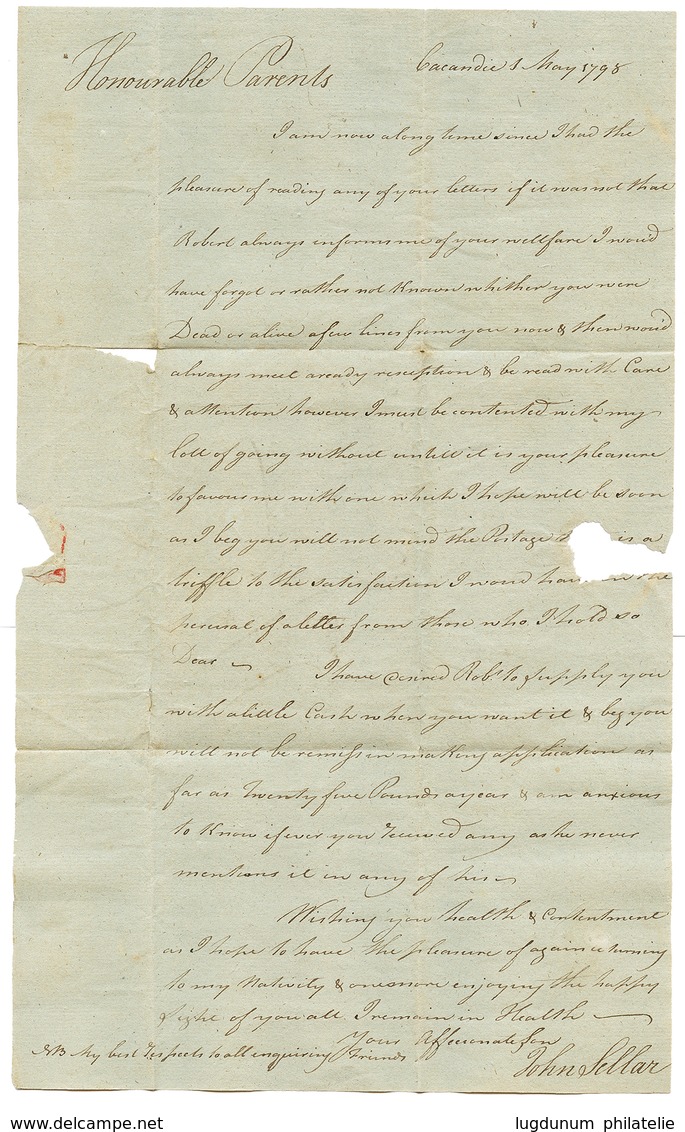 Honourable Parents
Cacandie 1 May 1798
I am now a long time since I had the
pleasure of reading any of your letters if it was not that
Robert always informs me of your wellfare I would
have forgot or rather not Known whither you were
Dead or alive a few lines from you now & then would
always meet a ready resception & be read with Care
& attention however I must be contented with my
lott of going without untill it is your pleasure
to favour me with one which I hope will be soon
as I beg you will not mind the Postage is a
triffle to the satisfaction I woud have in the
perusal of a letter from those who I hold so
Dear
I have desired Robt. to supply you
with a little Cash when you want it & beg you
will not be remiss in making application as
far as Twenty five Pounds a year & am anxious
to Know if ever you received any as he never
mentions it in any of his
Wishing you health & Contentment
as I hope to have the pleasure of again returning
to my Nativity & once more enjoying the happy
sight of you all I remain in Health
Your Affecionate Son
NB My best respects to all inquiring Friends
John Sellar
www.delcampe.net
lugdunum philatelie